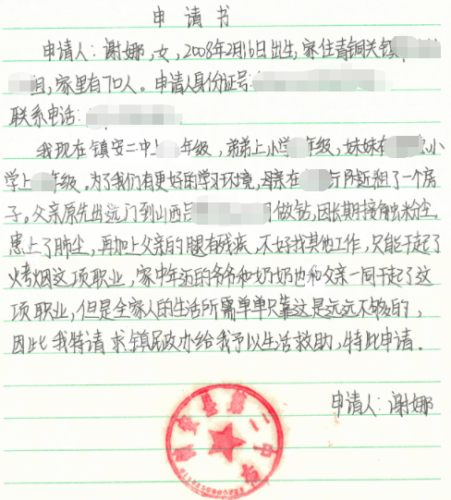 申请书
申请人：谢娜，女，2008年2月16日出生，家住青铜关镇
组，家里有7口人。申请人身份证号：
联系电话：
我现在镇安二中上 年级，弟弟上小学 年级，妹妹在 小
学上 年级。为了我们有更好的学习环境，母亲在 附近租了一个房
子。父亲原先出远门到山西 做钻，因长期接触粉尘，
患上了肺尘，再加上父亲的腿有残疾，不好找其他工作，只能干起了
烤烟这项职业，家中年迈的爷爷和奶奶也和父亲一同干起了这
项职业，但是全家人的生活所需单单只靠这是远远不够的，
因此我特请求镇民政办给我予以生活救助，特此申请。
申请人：谢娜